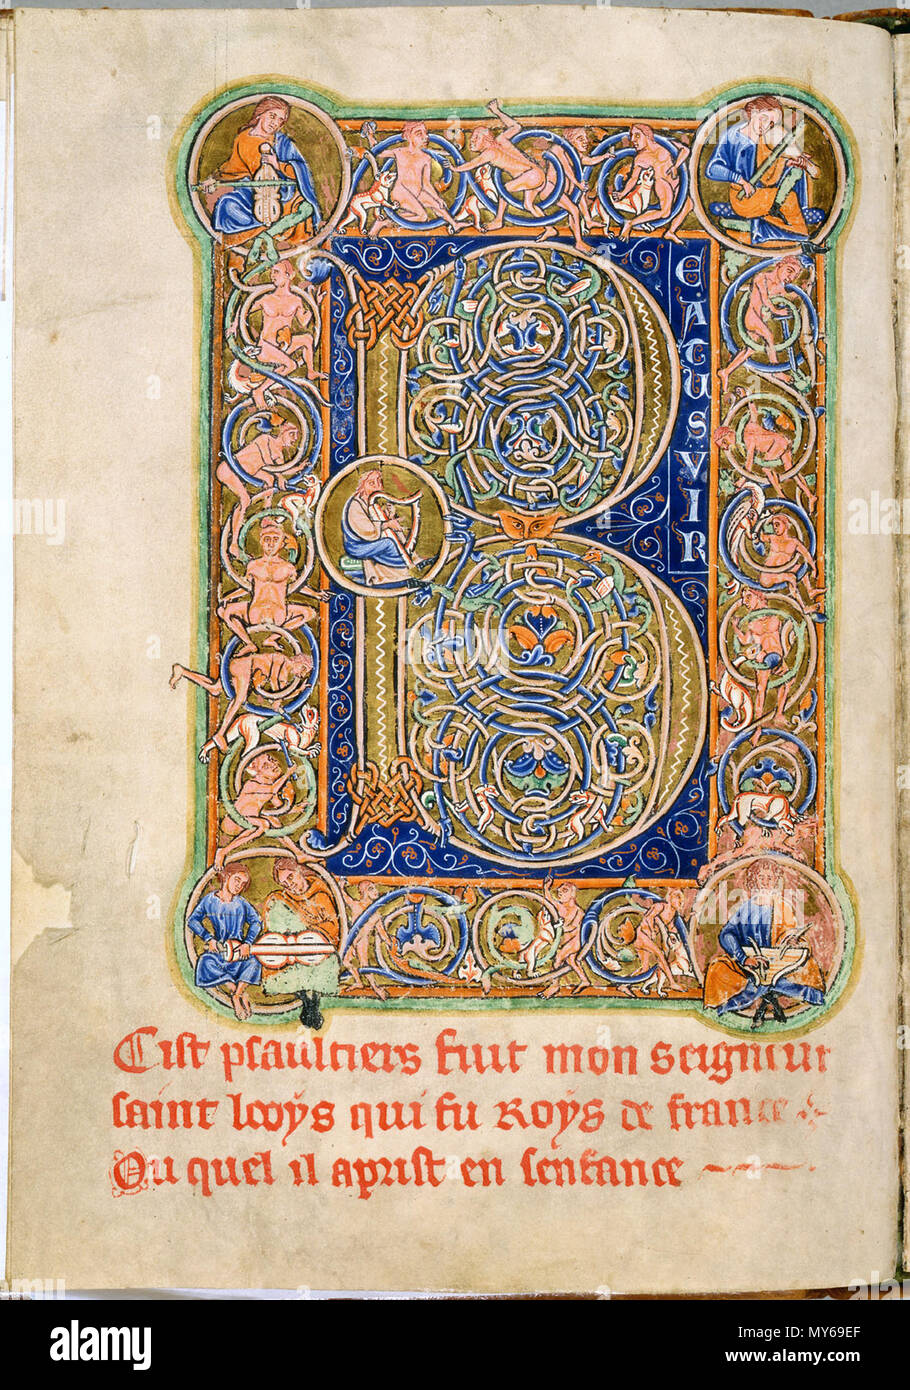 B
EATUS VIR
Cist psaultiers fuit mon seigneur
saint looys qui fu Roys de france
Ou quel il aprist en senfance
alamy
Image ID: MY69EF
www.alamy.com